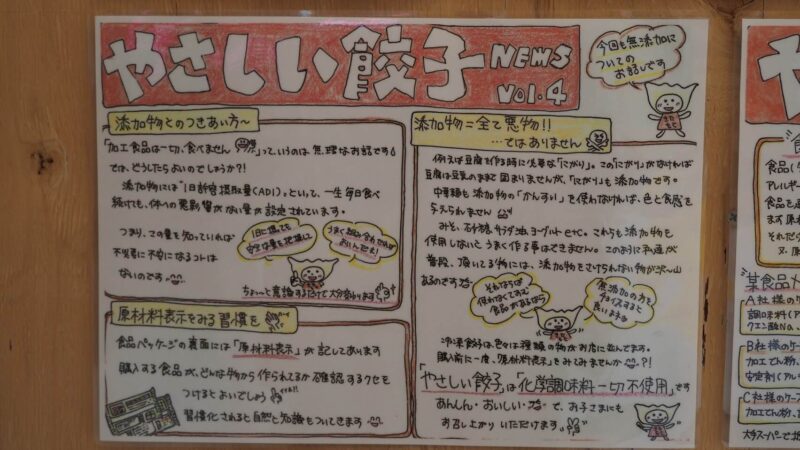 やさしい餃子
NEWS
Vol.4
今回も無添加に
ついての
お話しです
添加物とのつきあい方〜
「加工食品は一切、食べません」っていうのは無理なお話です
では、どうしたらよいのでしょうか?!
添加物には「1日許容摂取量(ADI)」といって、一生毎日食べ
続けても、体への悪影響がない量が設定されています。
つまり、この量を知っていれば
不必要に不安になるコトは
ないのです。
1日に摂っても
安全な量を把握に
うまく組み合わせれば
おいんだね!
ちょ〜っと意識するだけで大分変わります
原材料表示をみる習慣を
食品パッケージの裏面には「原材料表示」が記してあります
購入する食品が、どんな物から作られてるか確認するクセを
つけるとよいでしょう
習慣化されると自然と知識もついてきます
添加物=全て悪物!!
…ではありません
例えば豆腐を作る時に必要な「にがり」。この「にがり」がなければ
豆腐は豆乳のままで固まりませんが、「にがり」も添加物です。
中華麺も添加物の「かんすい」を使わなければ、色と食感を
与えられません
みそ、砂糖、サラダ油、ヨーグルトetc。これらも添加物を
使用しないとうまく作る事はできません。このように私達が
普段、頂いてる物には、添加物をさけられない物が沢〜山
あるのです
それならば
使わなくてすむ
食品があるなら
無添加の方を
チョイスすると
良いよネ
冷凍餃子は色々な種類の物がお店に並んでます。
購入前に一度、「原材料表示」をみてみませんか?!
「やさしい餃子」は「化学調味料一切不使用」です
あんしん・おいしいで、お子さまにも
お召し上がりいただけます。
食品(
アレルギー
食品を
ます原
それだ
又、原
某食品メ
A社様の
調味料(ア
クエン酸Na、
B社様のケ
加工でん粉、
安定剤(アル
C社様のケース
加工でん粉、
大手スーパーで